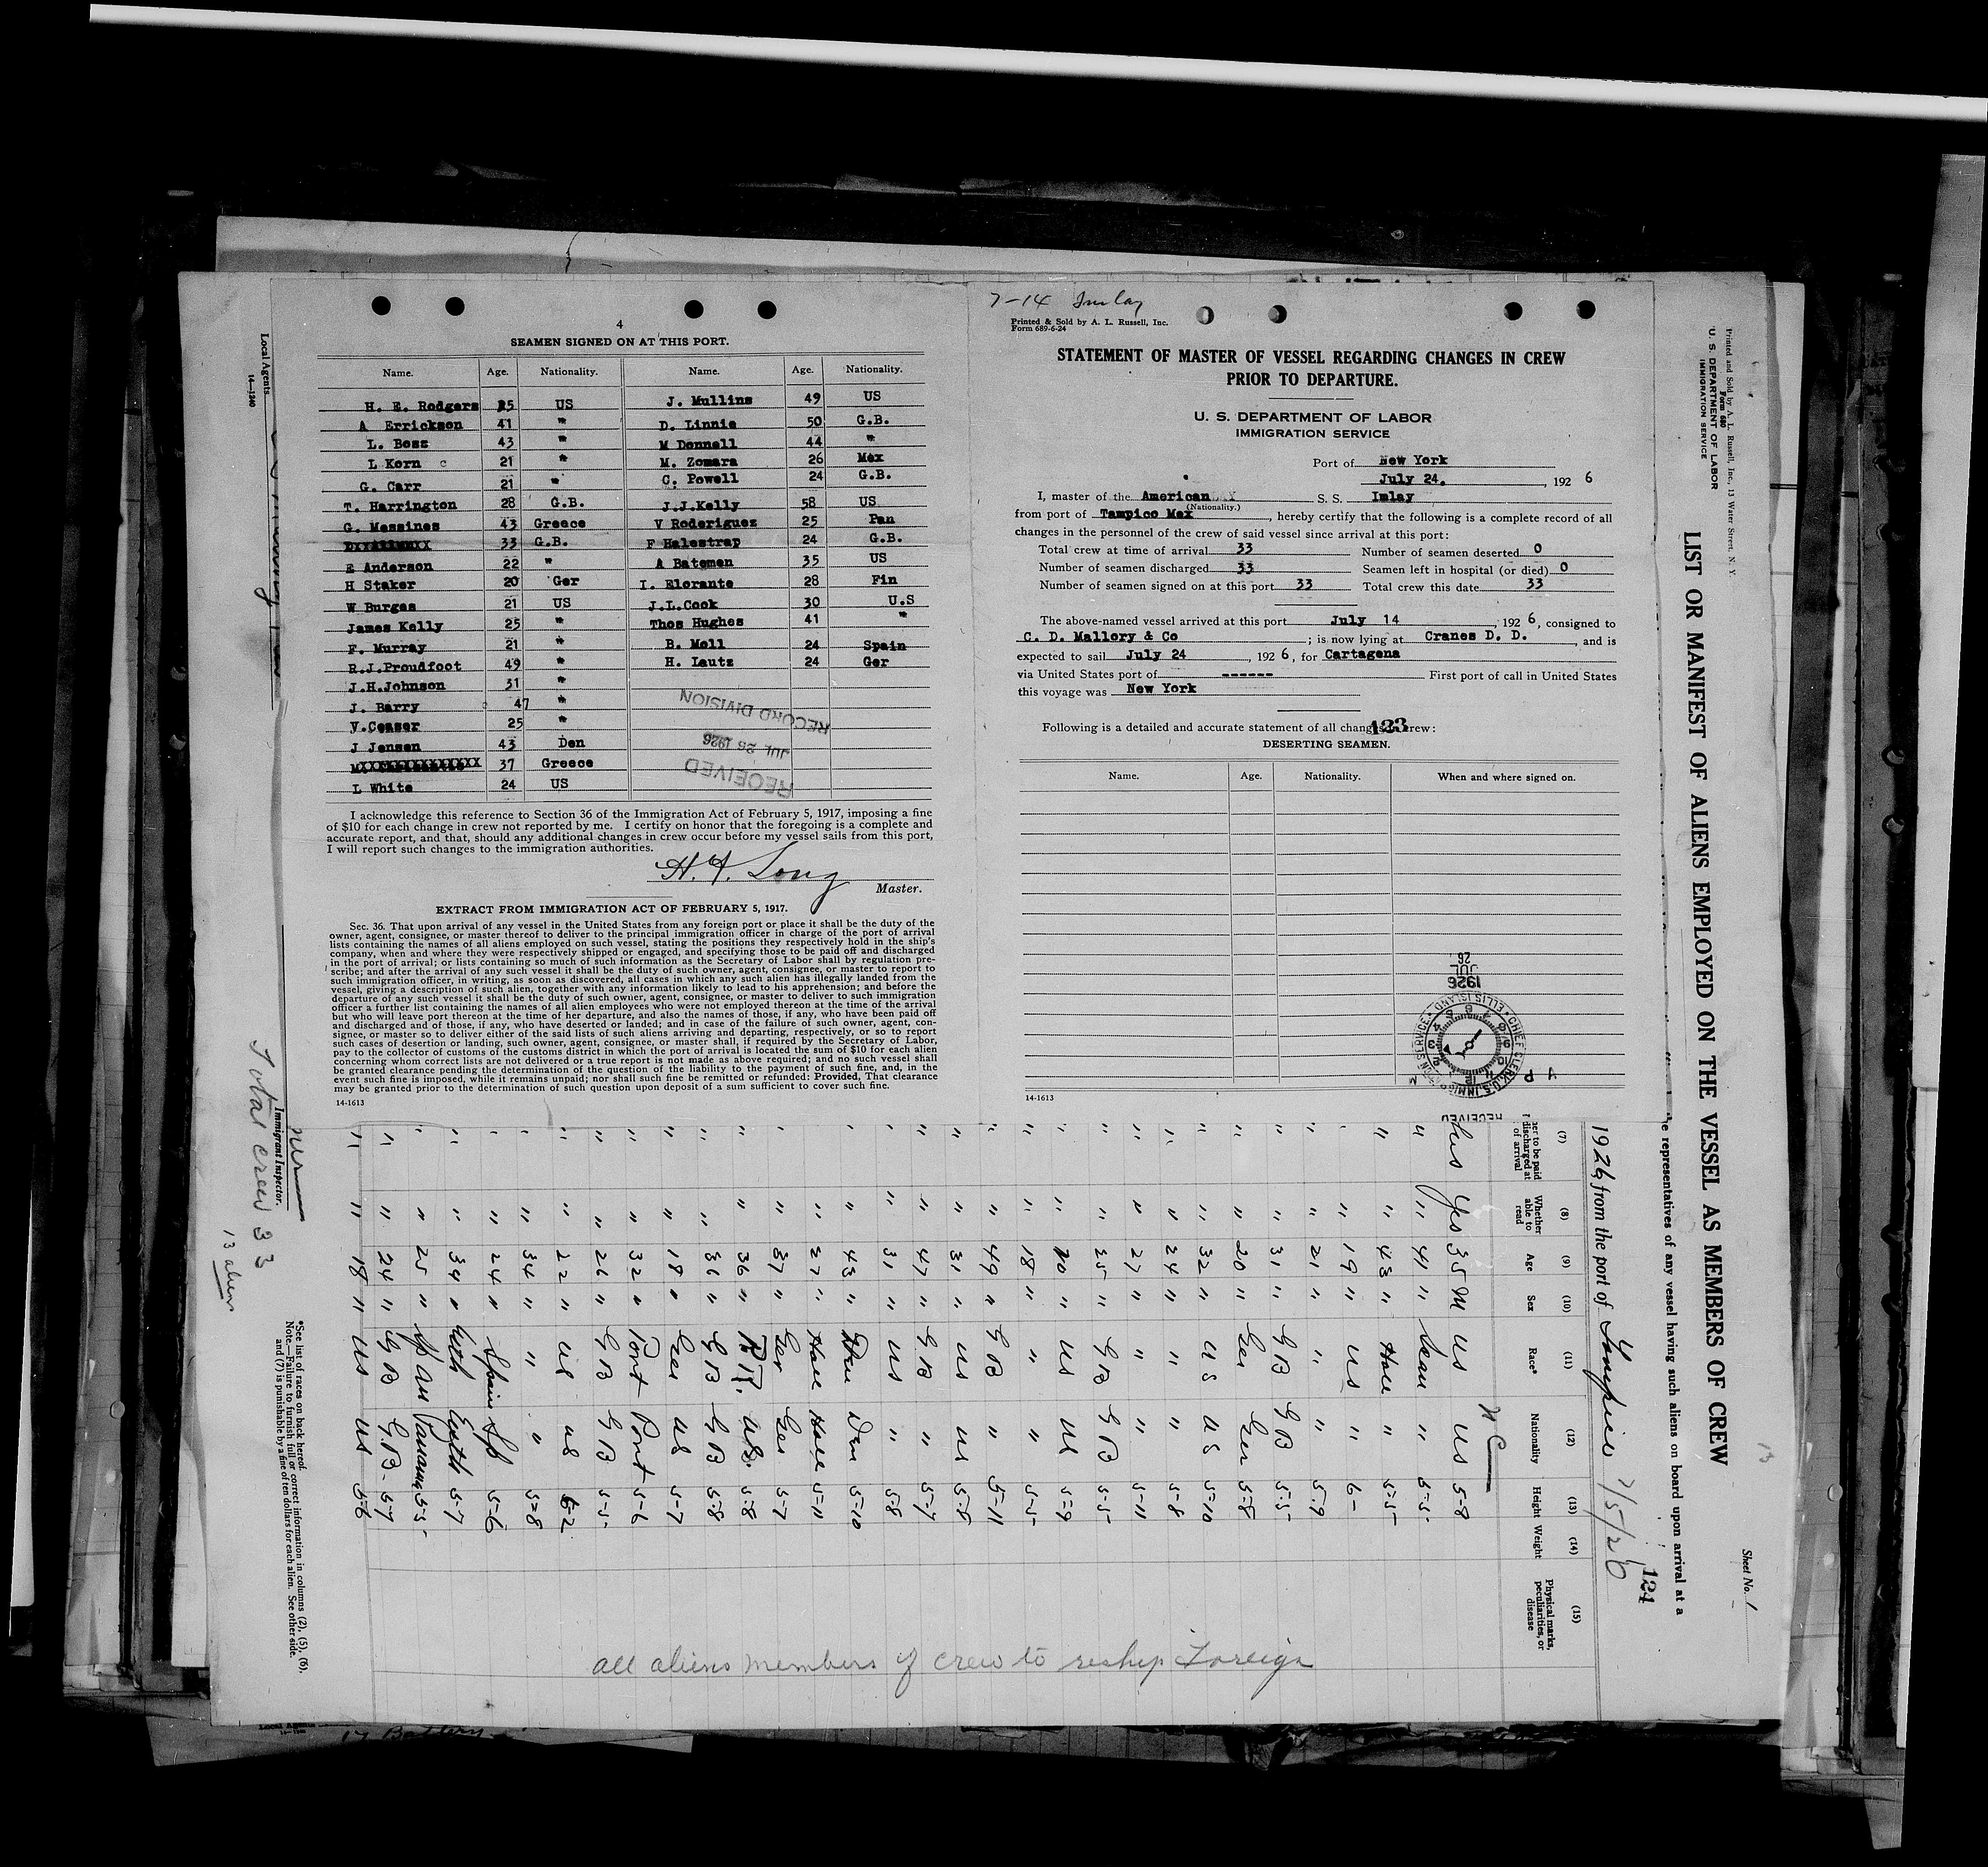 4
SEAMEN SIGNED ON AT THIS PORT.
Name. Age. Nationality. Name. Age. Nationality.
H. E. Rodgers 25 US J. Mullins 49 US
A Errickson 41 " D. Linnie 50 G.B.
L. Boss 43 " M Donnell 44 "
L Korn 21 " M. Zomara 26 Mex
G. Carr 21 " C. Powell 24 G.B.
T. Harrington 28 G.B. J.J.Kelly 58 US
G. Messines 43 Greece V Roderiguez 25 Pan
33 G.B. F Halestrap 24 G.B.
E Anderson 22 " A Batemen 35 US
H Staker 20 Ger I. Elorante 28 Fin
W Burgas 21 US J.L.Cook 30 U.S
James Kelly 25 " Thos Hughes 41 "
F. Murray 21 " B. Moll 24 Spain
R.J.Proudfoot 49 " H. Lautz 24 Ger
J.H.Johnson 31 "
J. Barry 47 "
V.Ceaser 25 "
J Jensen 43 Den
37 Greece
L White 24 US
RECORD DIVISION
JUL 26 1926
RECEIVED
I acknowledge this reference to Section 36 of the Immigration Act of February 5, 1917, imposing a fine
of $10 for each change in crew not reported by me. I certify on honor that the foregoing is a complete and
accurate report, and that, should any additional changes in crew occur before my vessel sails from this port,
I will report such changes to the immigration authorities.
H. A. Long
Master.
EXTRACT FROM IMMIGRATION ACT OF FEBRUARY 5, 1917.
Sec. 36. That upon arrival of any vessel in the United States from any foreign port or place it shall be the duty of the
owner, agent, consignee, or master thereof to deliver to the principal immigration officer in charge of the port of arrival
lists containing the names of all aliens employed on such vessel, stating the positions they respectively hold in the ship's
company, when and where they were respectively shipped or engaged, and specifying those to be paid off and discharged
in the port of arrival; or lists containing so much of such information as the Secretary of Labor shall by regulation pre-
scribe; and after the arrival of any such vessel it shall be the duty of such owner, agent, consignee, or master to report to
such immigration officer, in writing, as soon as discovered, all cases in which any such alien has illegally landed from the
vessel, giving a description of such alien, together with any information likely to lead to his apprehension; and before the
departure of any such vessel it shall be the duty of such owner, agent, consignee, or master to deliver to such immigration
officer a further list containing the names of all alien employees who were not employed thereon at the time of the arrival
but who will leave port thereon at the time of her departure, and also the names of those, if any, who have been paid off
and discharged and of those, if any, who have deserted or landed; and in case of the failure of such owner, agent, con-
signee, or master so to deliver either of the said lists of such aliens arriving and departing, respectively, or so to report
such cases of desertion or landing, such owner, agent, consignee, or master shall, if required by the Secretary of Labor,
pay to the collector of customs of the customs district in which the port of arrival is located the sum of $10 for each alien
concerning whom correct lists are not delivered or a true report is not made as above required; and no such vessel shall
be granted clearance pending the determination of the question of the liability to the payment of such fine, and, in the
event such fine is imposed, while it remains unpaid; nor shall such fine be remitted or refunded: Provided, That clearance
may be granted prior to the determination of such question upon deposit of a sum sufficient to cover such fine.
14-1613
7-14 Imlay
Printed & Sold by A. L. Russell, Inc.
Form 689-6-24
STATEMENT OF MASTER OF VESSEL REGARDING CHANGES IN CREW
PRIOR TO DEPARTURE.
U. S. DEPARTMENT OF LABOR
IMMIGRATION SERVICE
Port of New York
July 24. , 192 6
I, master of the American S. S. Imlay
(Nationality.)
from port of Tampico Mex , hereby certify that the following is a complete record of all
changes in the personnel of the crew of said vessel since arrival at this port:
Total crew at time of arrival 33 Number of seamen deserted 0
Number of seamen discharged 33 Seamen left in hospital (or died) 0
Number of seamen signed on at this port 33 Total crew this date 33
The above-named vessel arrived at this port July 14 , 192 6, consigned to
C. D. Mallory & Co ; is now lying at Cranes D. D. , and is
expected to sail July 24 , 192 6, for Cartagena
via United States port of ------ First port of call in United States
this voyage was New York
Following is a detailed and accurate statement of all changes in crew:
123
DESERTING SEAMEN.
Name. Age. Nationality. When and where signed on.
1926
JUL
26
CHIEF CLERK, U.S. IMMIGRATION SERVICE • ELLIS ISLAND
P M
RECEIVED
14-1613
Printed and Sold by A. L. Russell, Inc., 13 Water Street, N. Y.
Form 680
U. S. DEPARTMENT OF LABOR
IMMIGRATION SERVICE
Sheet No. 1
13
LIST OR MANIFEST OF ALIENS EMPLOYED ON THE VESSEL AS MEMBERS OF CREW
he representatives of any vessel having such aliens on board upon arrival at a
124
1926, from the port of Tampico 7/5/26
(7) (8) (9) (10) (11) (12) (13) (14) (15)
her to be paid discharged at of arrival Whether able to read Age Sex Race* Nationality Height Weight Physical marks, peculiarities, or disease
Yes Yes 35 M US US 5-8
" " 41 " Scan " 5-5
" " 43 " Holl " 5-5
" " 19 " US " 6-
" " 21 " " " 5-9
" " 31 " GB GB 5-5
" " 20 " Ger Ger 5-8
" " 32 " US US 5-10
" " 24 " " " 5-8
" " 27 " " " 5-11
" " 35 " GB GB 5-5
" " 20 " US US 5-9
" " 18 " " " 5-5
" " 49 " GB " 5-11
" " 31 " US US 5-8
" " 47 " GB " 5-7
" " 31 " US " 5-8
" " 43 " Den Den 5-10
" " 27 " Holl Holl 5-11
" " 37 " Ger Ger 5-7
" " 36 " P.R. US. 5-8
" " 36 " GB GB 5-8
" " 18 " Ger US 5-7
" " 32 " Port Port 5-6
" " 26 " GB GB 5-5
" " 22 " US US 5-2
" " 34 " " " 5-8
" " 24 " Spain Sp 5-6
" " 34 " 5-7
" " 25 " Panama 5-5
" " 24 " GB G.B. 5-7
" " 18 " US US 5-6
all aliens members of crew to reship Foreign
*See list of races on back hereof.
Note—Failure to furnish full or correct information in columns (2), (5), (6),
and (7) is punishable by a fine of ten dollars for each alien. See other side.
Immigrant Inspector.
Total crew 33
13 aliens
Local Agents.
14—1240
Local Agents
17 Battery